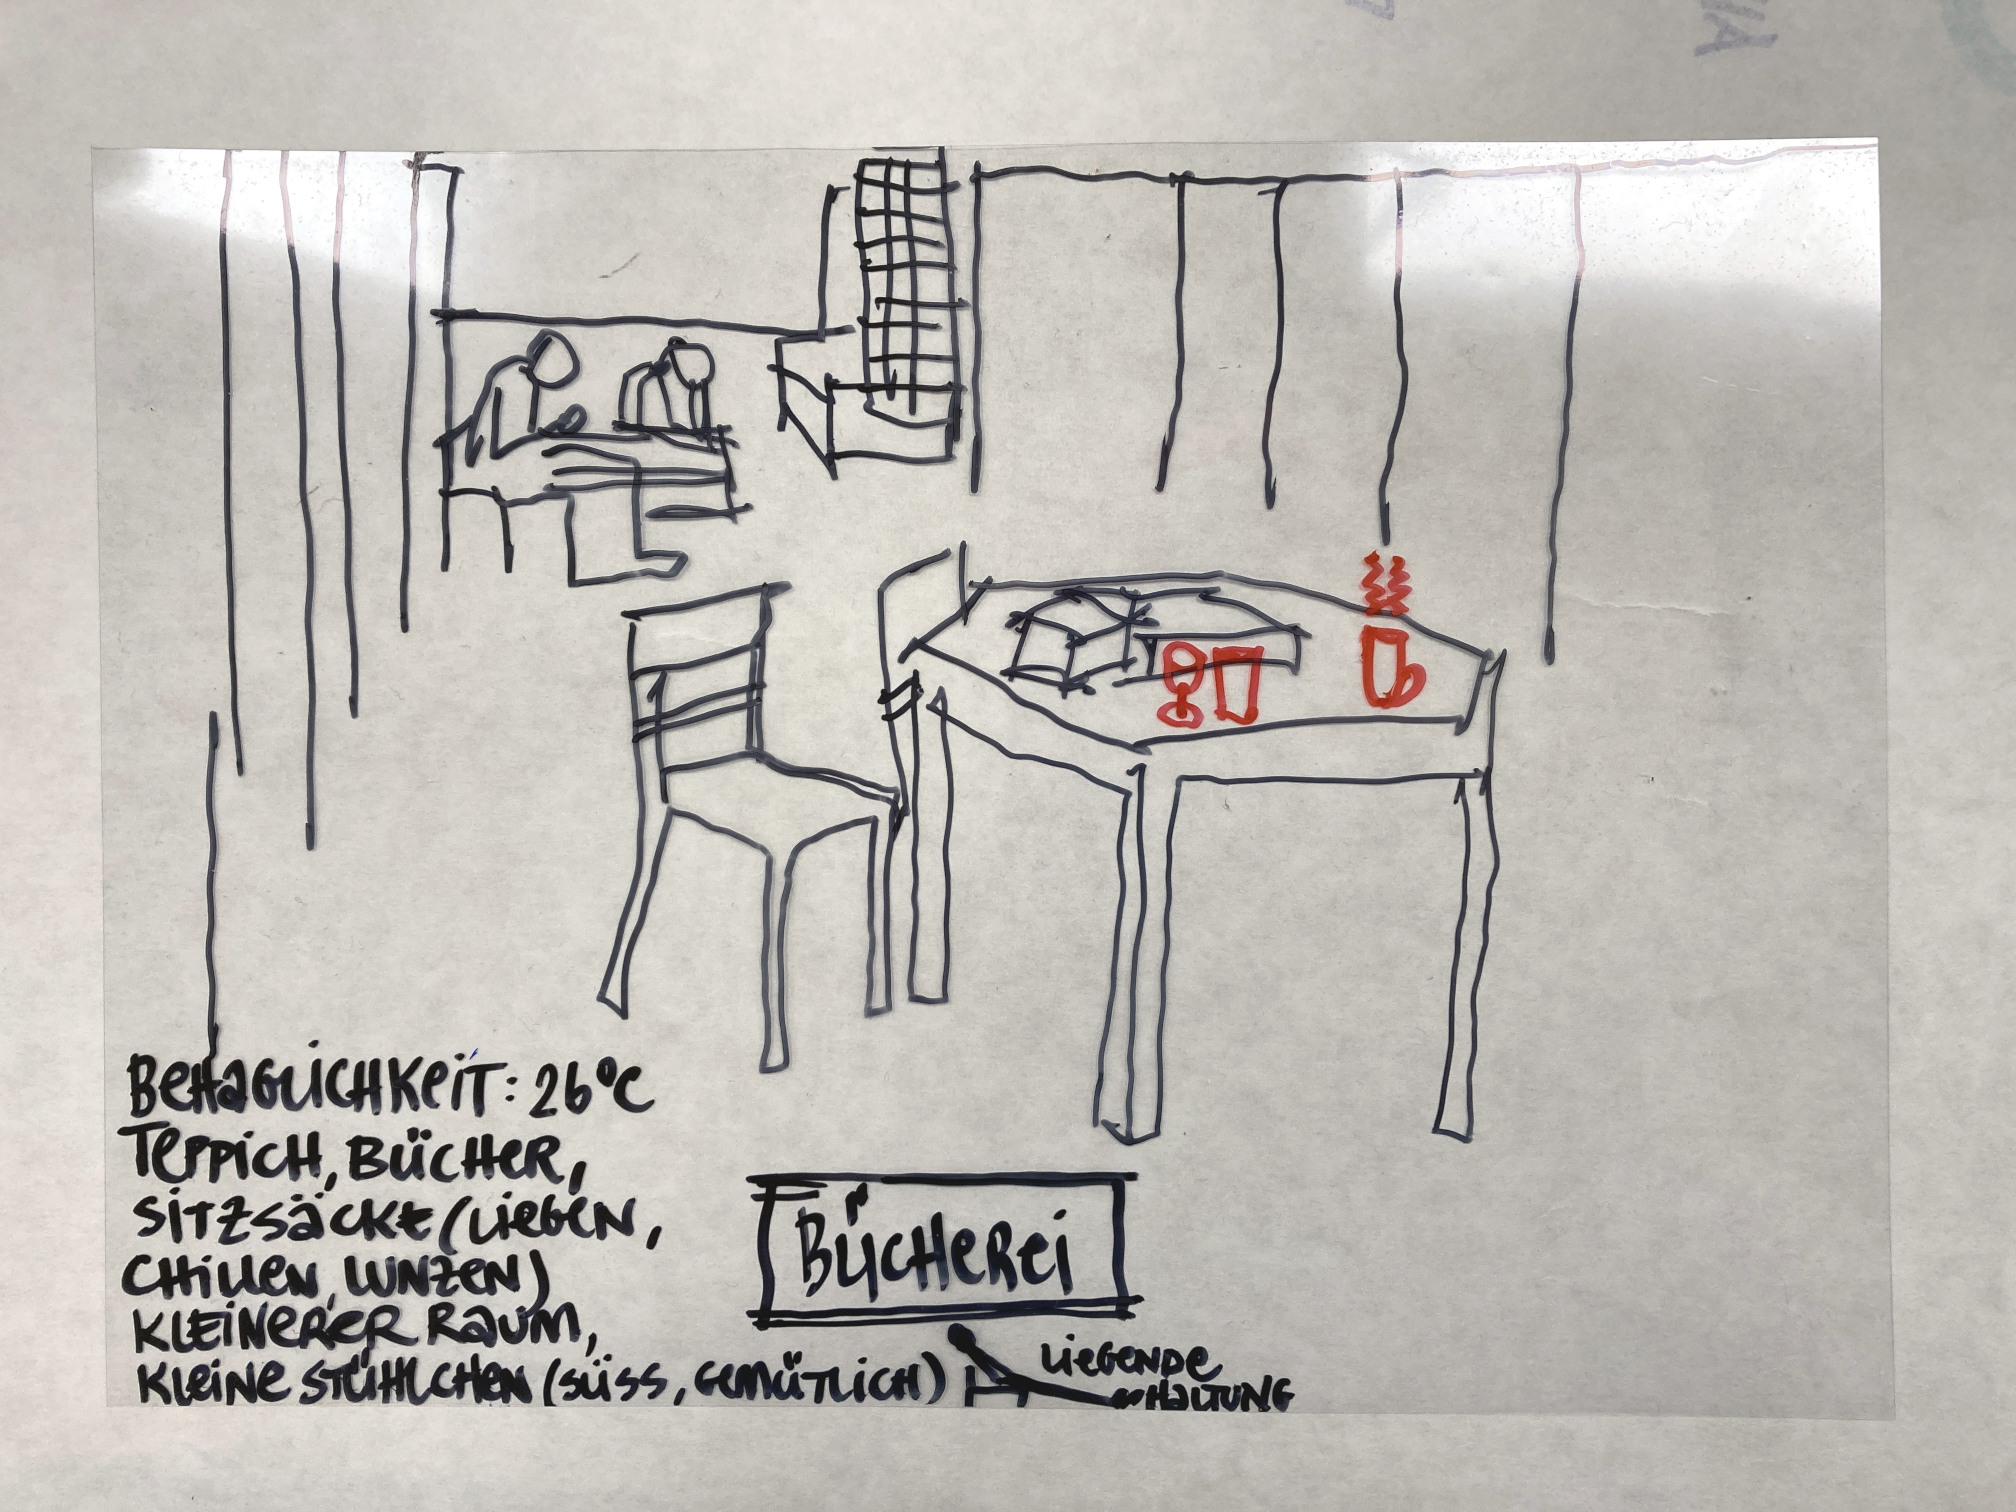 BEHAGLICHKEIT: 26°C
TEPPICH, BÜCHER,
SITZSÄCKE (LIEGEN,
CHILLEN, LUNZEN)
KLEINERER RAUM,
KLEINE STÜHLCHEN (SÜSS, GEMÜTLICH)
BÜCHEREI
LIEGENDE
HALTUNG